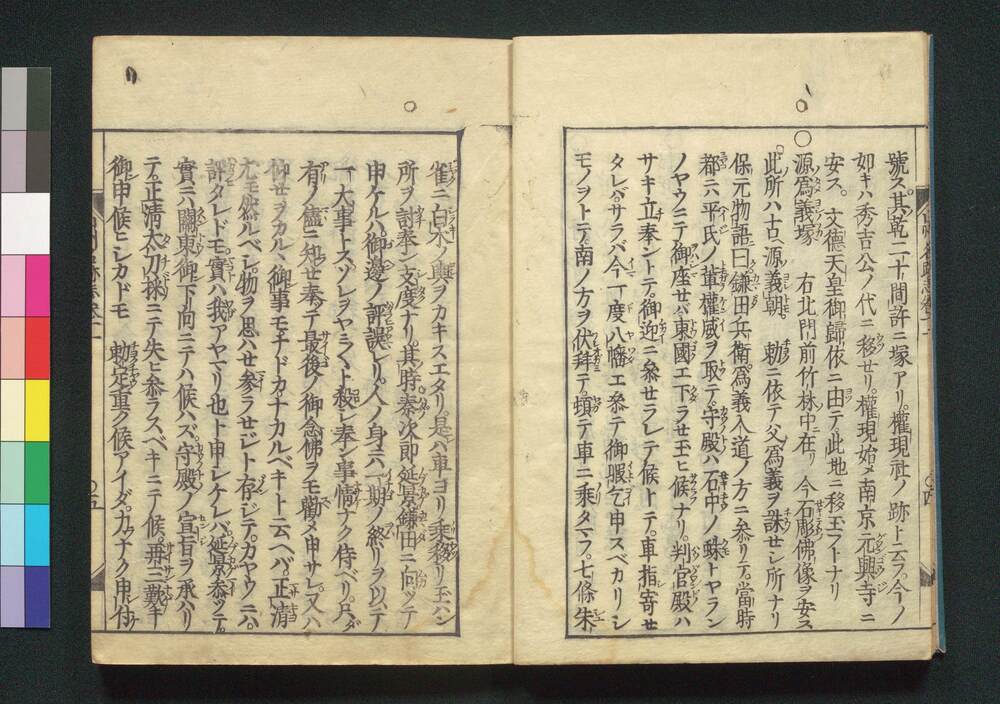 號ス其乾二十間許ニ塚アリ。權現社ノ跡ト云フ。今ノ
如キハ秀吉公ノ代ニ移セリ。權現始メ南京元興寺ニ
安ス。文德天皇御歸依ニ由テ此地ニ移玉フトナリ
○源爲義塚 右北門前竹林中在リ 今石彫佛像ヲ安ス
此所ハ古ヘ源義朝 勅ニ依テ父爲義ヲ誅セシ所ナリ
保元物語曰鎌田兵衛爲義入道ノ方ニ參リテ。當時
都ニハ平氏ノ輩權威ヲ取テ。守殿ハ石中ノ蛛トヤラン
ノヤウニテ御座セバ東國エ下ラセ玉ヒ候ナリ。判官殿ハ
サキ立奉ントテ。御迎ニ參セラレテ候トテ。車指寄セ
タレバ。サラバ今一度八幡エ參テ御暇乞申スベカリシ
モノヲトテ。南ノ方ヲ伏拜テ。頓テ車ニ乘タマフ。七條朱
雀ニ白木ノ輿ヲカキスエタリ。是ハ車ヨリ乘移リ玉ハン
所ヲ討奉ン支度ナリ。其時秦次郎延景鎌田ニ向ッテ
申ケルハ御邊ノ評誤レリ。人ノ身ニハ一期ノ終リヲ以テ
一大事トス。ソレヲヤミ〱ト殺シ奉ン事情ナク侍ベリ。只ダ
有ノ儘ニ知セ奉テ最後ノ御念佛ヲモ勸メ申サレ。又ハ
仰セヲカルヽ御事モナドカナカルベキト云ヘハ。正淸
尤モ然ルベシ。物ヲ思ハセ參ラセジト存ジテ。カヤウニハ
評タレドモ。實ハ我アヤマリ也ト申シケレバ。延景參ッテ。
實ニハ關東御下向ニテハ候ハズ。守殿ノ宣旨ヲ承ハリ
テ。正淸太刀採ニテ失ヒ參ラスベキニテ候。再三歎キ
御申候ヒシカドモ 勅定重ク候アイダ。力ナク申付